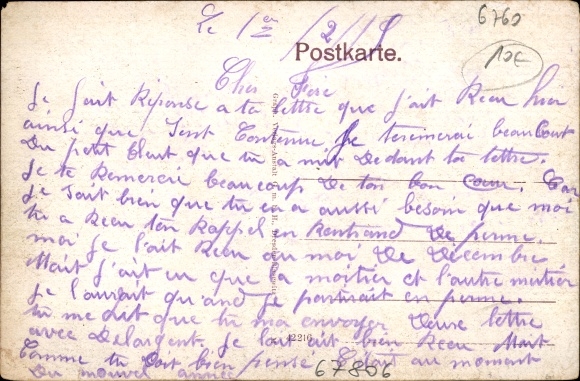 Le 1er / 2 / 18
6760
10E
Postkarte.
Cher Frère
Je fait Réponse a ta lettre que j'ait Recu hier
ainsi que Sont Contenue, Je temimerci beaucout
Du petit Chut que tu a mis Dedant ta lettre.
Je te Remerci beaucoup De ton bon Cœur. Car
Je sait bien que tu en a aussi besoin que moi
tu a Recu ton Rappel en Rentrand De perme.
moi Je l'ait Recu au moi De Decembre
Mait J'ait eu que la moitier et l'autre moitier
Je l'aurait qu'and Je partirait en perme.
tu me Dit que tu ma envoyer Deuxe lettre
avec Delargent. Je l'ait ait bien Recu Mait
Comme tu Doit bien pensé C'était au moment
Du nouvel année
67806